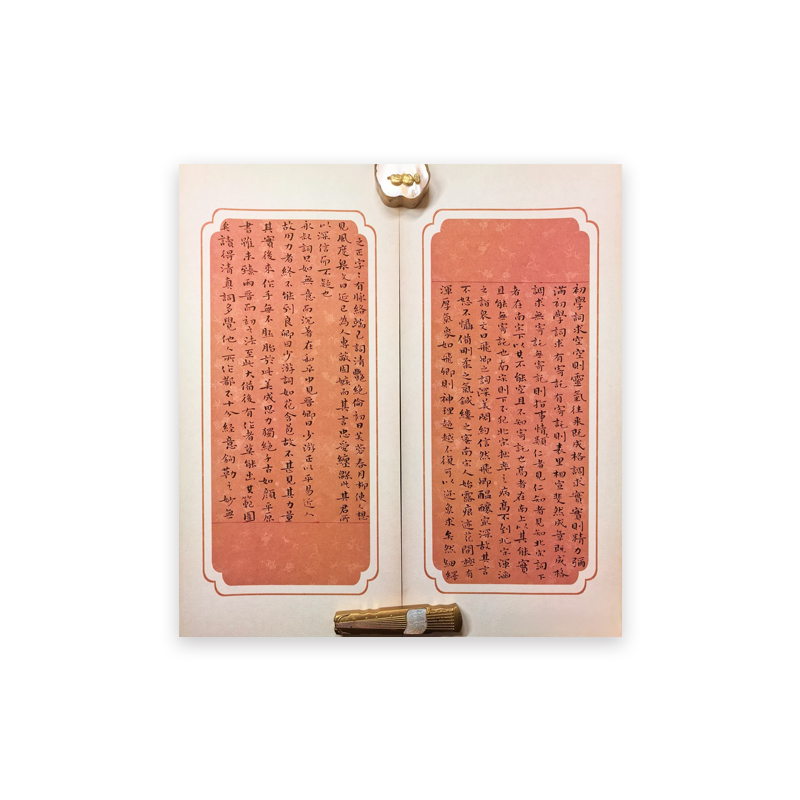 初學詞求空空則靈氣往來既成格調求實實則精力彌
滿初學詞求有寄託有寄託則表里相宣斐然成章既成格
調求無寄託無寄託則指事情類仁者見仁知者見知北宋詞下
者在南宋下以其不能空且不知寄託也高者在南上以其能實
且能無寄託也南宋則下不犯北宋拙率之病高不到北宋渾涵
之詣皋文曰飛卿之詞深美閎約信然飛卿醞釀最深故其言
不怒不懾備剛柔之氣鍼縷之密南宋人始露痕迹花間極有
渾厚氣象如飛卿則神理超越不復可以迹象求矣然細繹
之正字字有脈絡端己詞清艷絕倫初日芙蓉春月柳使人想
見風度皋文曰延巳為人專蔽固嫉而其言忠愛纏綿此其君所
以深信而不疑也
永叔詞只如無意而沉著在和平中見晉卿曰少游正以平易近人
故用力者終不能到良卿曰少游詞如花含苞故不甚見其力量
其實後來作手無不胚胎於此美成思力獨絕千古如顏平原
書雖未臻兩晉而初之法至此大備後有作者莫能出其範圍
矣讀得清真詞多覺他人所作都不十分經意鉤勒之妙無